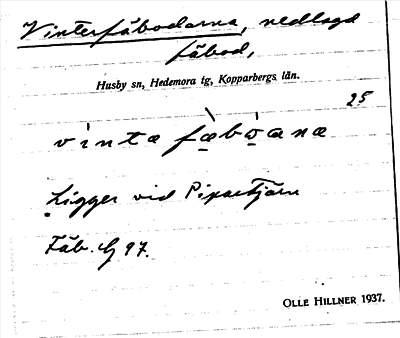 Vinterfäbodarna, nedlagd
fäbod,
Husby sn, Hedemora tg, Kopparbergs län.
25
vìntæ fæ̀bɷana
Ligger vid Pipartjärn
Fäb. G 97.
OLLE HILLNER 1937.